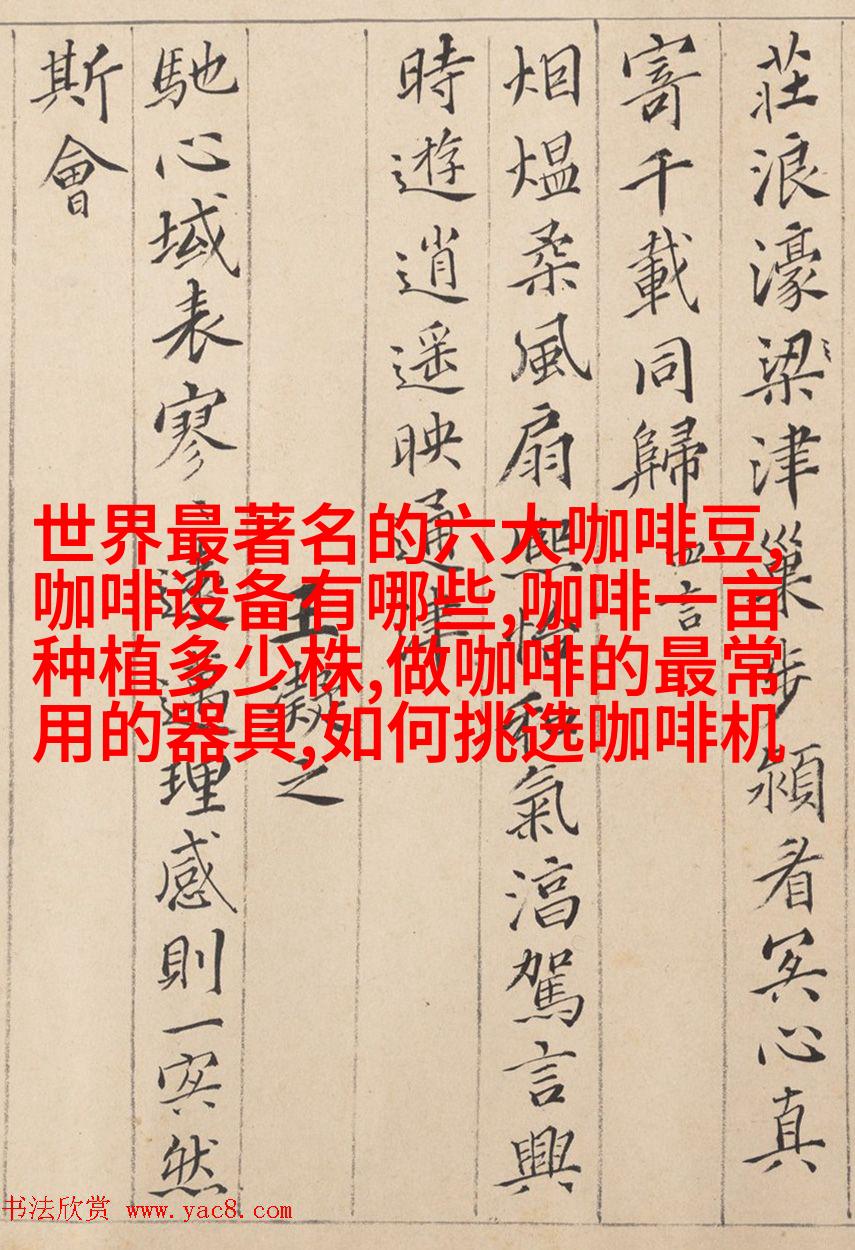 莊浪濠梁津巢步潁看冥心真
寄千載同歸 四言
烟熅柔風扇熙怡和氣淳駕言興
時遊逍遥映通津
王凝之
馳心域表寥々遠邁理感則一冥然
斯會
世界最著名的六大咖啡豆,
咖啡设备有哪些,咖啡一亩
种植多少株,做咖啡的最常
用的器具,如何挑选咖啡机
书法欣赏 www.yac8.com